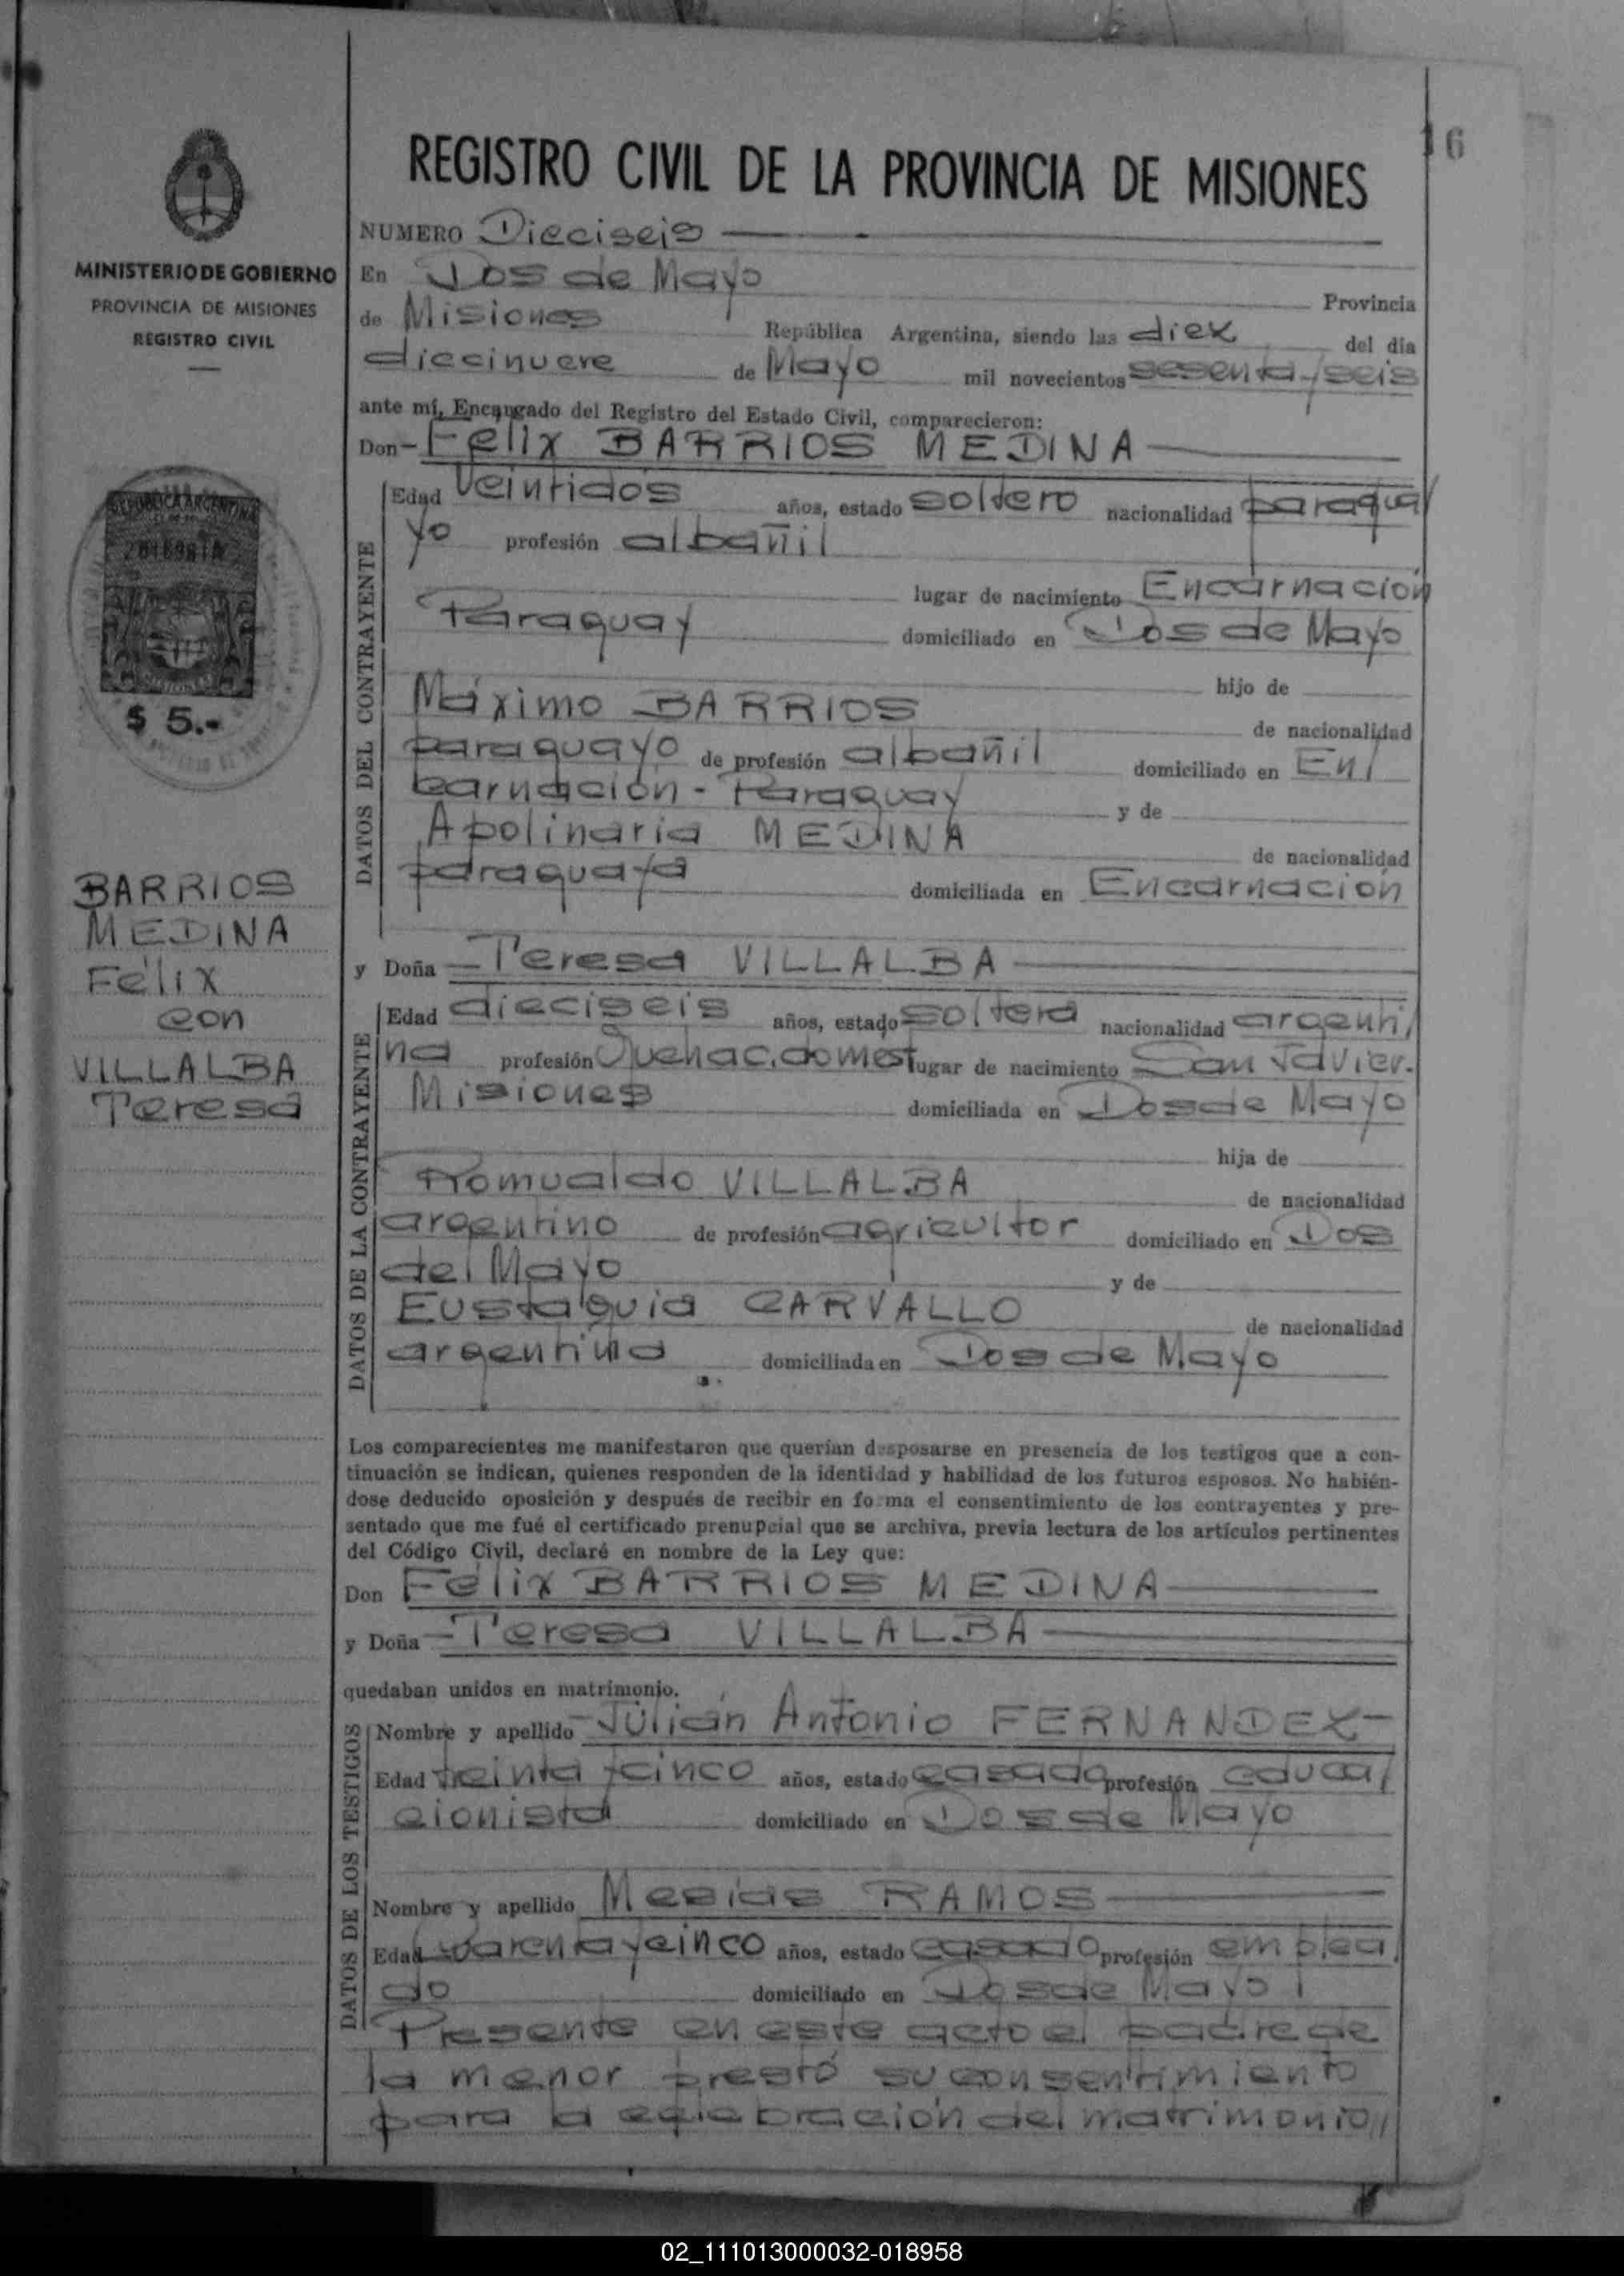 16
REGISTRO CIVIL DE LA PROVINCIA DE MISIONES
MINISTERIO DE GOBIERNO
PROVINCIA DE MISIONES
REGISTRO CIVIL
REPUBLICA ARGENTINA
$ 5.-
BARRIOS
MEDINA
Félix
con
VILLALBA
Teresa
NUMERO Dieciseis
En Dos de Mayo Provincia
de Misiones República Argentina, siendo las diez del día
diecinueve de Mayo mil novecientos sesenta y seis
ante mí, Encargado del Registro del Estado Civil, comparecieron:
Don - Félix BARRIOS MEDINA
DATOS DEL CONTRAYENTE
Edad veintidos años, estado soltero nacionalidad paragua/
yo profesión albañil
lugar de nacimiento Encarnación
Paraguay domiciliado en Dos de Mayo
hijo de
Máximo BARRIOS de nacionalidad
paraguayo de profesión albañil domiciliado en En/
carnación - Paraguay y de
Apolinaria MEDINA de nacionalidad
paraguaya domiciliada en Encarnación
y Doña - Teresa VILLALBA
DATOS DE LA CONTRAYENTE
Edad dieciseis años, estado soltera nacionalidad argenti/
na profesión Quehac. domest lugar de nacimiento San Javier.
Misiones domiciliada en Dos de Mayo
hija de
Romualdo VILLALBA de nacionalidad
argentino de profesión agricultor domiciliado en Dos
de Mayo y de
Eustaquia CARVALLO de nacionalidad
argentina domiciliada en Dos de Mayo
Los comparecientes me manifestaron que querían desposarse en presencia de los testigos que a con-
tinuación se indican, quienes responden de la identidad y habilidad de los futuros esposos. No habién-
dose deducido oposición y después de recibir en forma el consentimiento de los contrayentes y pre-
sentado que me fué el certificado prenupcial que se archiva, previa lectura de los artículos pertinentes
del Código Civil, declaré en nombre de la Ley que:
Don Félix BARRIOS MEDINA
y Doña - Teresa VILLALBA
quedaban unidos en matrimonio.
DATOS DE LOS TESTIGOS
Nombre y apellido - Julián Antonio FERNANDEZ -
Edad treinta y cinco años, estado casado profesión educa/
cionista domiciliado en Dos de Mayo
Nombre y apellido Mesias RAMOS
Edad cuarenta y cinco años, estado casado profesión emplea/
do domiciliado en Dos de Mayo
Presente en este acto el padre de
la menor prestó su consentimiento
para la celebración del matrimonio//
02_111013000032-018958